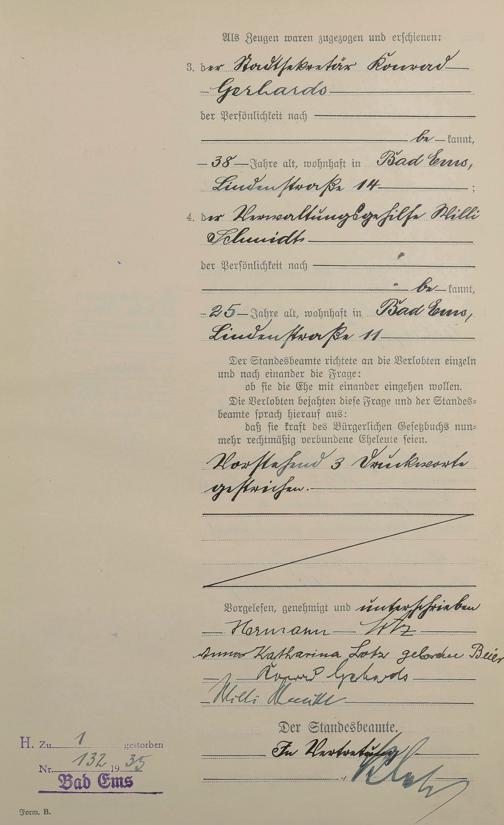 Als Zeugen waren zugezogen und erschienen:
3. der Stadtsekretär Konrad
Gerhards
der Persönlichkeit nach
be kannt,
38 Jahre alt, wohnhaft in Bad Ems,
Lindenstraße 14 ;
4. der Verwaltungsgehilfe Willi
Schmidt
der Persönlichkeit nach
be kannt,
25 Jahre alt, wohnhaft in Bad Ems,
Lindenstraße 11
Der Standesbeamte richtete an die Verlobten einzeln
und nach einander die Frage:
ob sie die Ehe mit einander eingehen wollen.
Die Verlobten bejahten diese Frage und der Standes-
beamte sprach hierauf aus:
daß sie kraft des Bürgerlichen Gesetzbuchs nun-
mehr rechtmäßig verbundene Eheleute seien.
Vorstehend 3 Druckworte
gestrichen.
Vorgelesen, genehmigt und unterschrieben
Hermann Lotz
Anna Katharina Lotz geboren Beier
Konrad Gerhards
Willi Schmidt
Der Standesbeamte.
In Vertretung
H. Zu 1 gestorben
Nr. 132 1935
Bad Ems
Form. B.